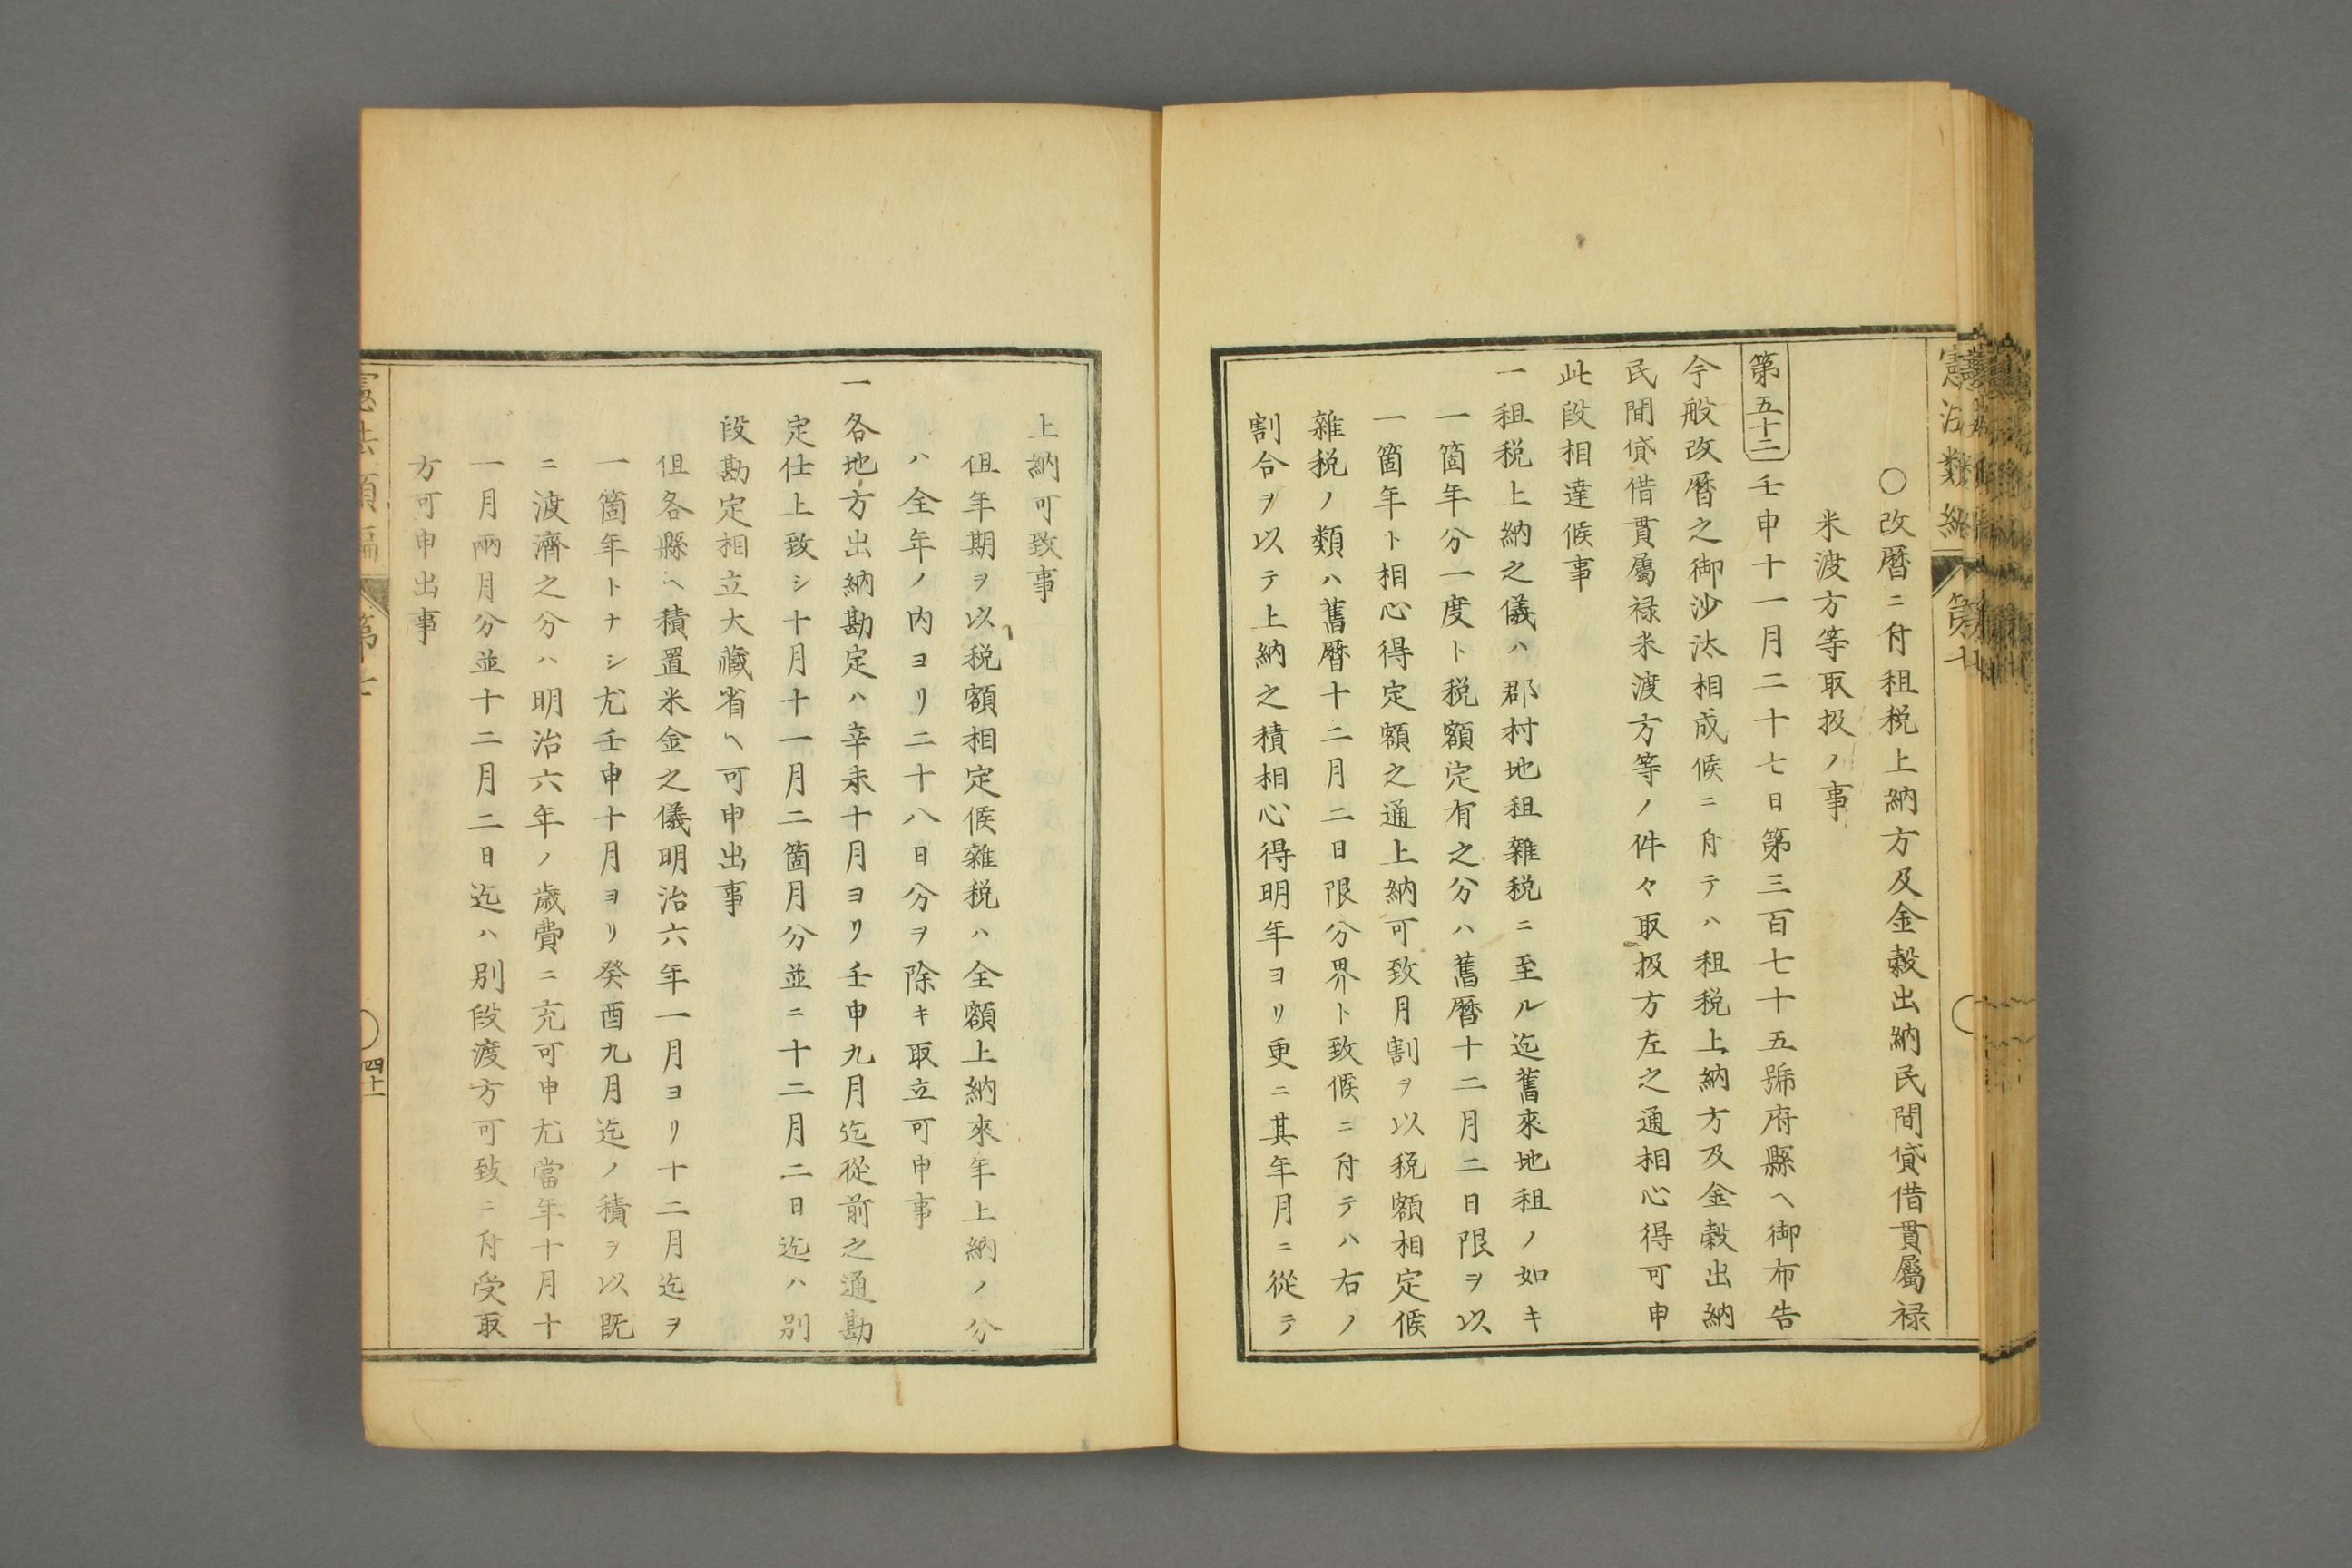 ○改暦ニ付租税上納方及金穀出納民間貸借貫屬禄
米渡方等取扱ノ事
第五十二 壬申十一月二十七日第三百七十五號府縣ヘ御布告
今般改暦之御沙汰相成候ニ付テハ租税上納方及金穀出納
民間貸借貫屬禄米渡方等ノ件々取扱方左之通相心得可申
此段相達候事
一租税上納之儀ハ郡村地租雜税ニ至ル迄舊來地租ノ如キ
一箇年分一度ト税額定有之分ハ舊暦十二月二日限ヲ以
一箇年ト相心得定額之通上納可致月割ヲ以税額相定候
雜税ノ類ハ舊暦十二月二日限分界ト致候ニ付テハ右ノ
割合ヲ以テ上納之積相心得明年ヨリ更ニ其年月ニ從テ
上納可致事
但年期ヲ以税額相定候雜税ハ全額上納來年上納ノ分
ハ全年ノ内ヨリ二十八日分ヲ除キ取立可申事
一各地方出納勘定ハ辛未十月ヨリ壬申九月迄從前之通勘
定仕上致シ十月十一月二箇月分並ニ十二月二日迄ハ別
段勘定相立大藏省ヘ可申出事
但各縣ヘ積置米金之儀明治六年一月ヨリ十二月迄ヲ
一箇年トナシ尤壬申十月ヨリ癸酉九月迄ノ積ヲ以既
ニ渡濟之分ハ明治六年ノ歳費ニ充可申尤當年十月十
一月兩月分並十二月二日迄ハ別段渡方可致ニ付受取
方可申出事
憲法類編 第十
四十一